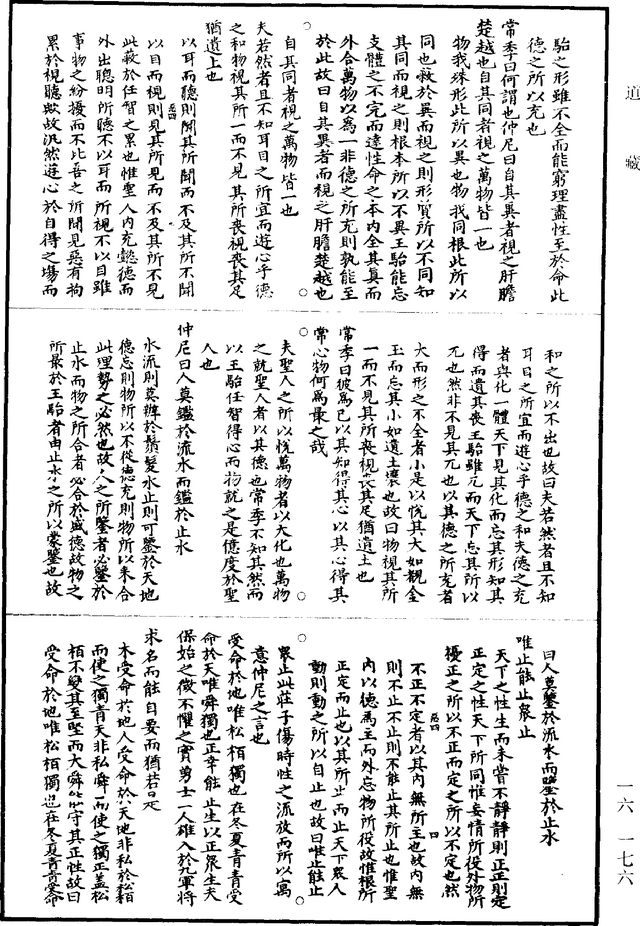 道藏
駘之形雖不全而能窮理盡性至於命此
德之所以充也
常季曰何謂也仲尼曰自其異者視之肝膽
楚越也自其同者視之萬物皆一也
物我殊形此所以異也物我同根此所以
同也蔽於異而視之則形質所以不同知
其同而視之則根本所以不異王駘能忘
支體之不完而達性命之本內全其真而
外合萬物以為一非德之所充則孰能至
於此故曰自其異者而視之肝膽楚越也
自其同者視之萬物皆一也
夫若然者且不知耳目之所宜而遊心乎德
之和物視其所一而不見其所喪視喪其足
猶遺土也
以耳而聽則聞其所聞而不及其所不聞
以目而視則見其所見而不及其所不見
此蔽於任智之累也惟聖人內充懿德而
外出聰明所聽不以耳而所視不以目雖
事物之紛擾而不比吾之所聞見惡有拘
累於視聽歟故汎然遊心於自得之場而
和之所以不出也故曰夫若然者且不知
耳目之所宜而遊心乎德之和夫德之充
者與化一體天下見其化而忘其形知其
得而遺其喪王駘雖兀而天下忘其所以
兀也然非不見其兀也以其德之所充者
大而形之不全者小是以忘其大如觀全
玉而忘其小如遺土壤也故曰物視其所
一而不見其所喪視喪其足猶遺土也
常季曰彼為己以其知得其心以其心得其
常心物何為最之哉
夫聖人之所以悅萬物者以大化也萬物
之就聖人者以其德也常季不知其然而
以王駘任智得心而物就之是億度於聖
人也
仲尼曰人莫鑑於流水而鑑於止水
水流則莫辨於鬚髮水止則可鑒於天地
德忘則物所以不從德充則物所以來合
此理勢之必然也故人之所鑒者必鑒於
止水而物之所合者必合於盛德故物之
所最於王駘者由止水之所以蒙鑒也故
曰人莫鑒於流水而鑒於止水
唯止能止衆止
天下之性生而未嘗不靜靜則正正則定
正定之性天下所同惟妄情所役外物所
擾正之所以不正而定之所以不定也然
不正不定者以其內無所主也故內無
則不止不止則不能止其所止也惟聖
內以德為主而外忘物所役故惟根所
正定而止也以其所止而止天下衆人
動則動之所以自止也故曰唯止能止
衆止此莊子傷時性之流放而所以寓
意仲尼之言也
受命於地唯松栢獨也在冬夏青青受
命於天唯舜獨也正幸能止生以正衆生夫
保始之徵不懼之實勇士一人雄入於九軍將
求名而能自要而猶若是
木受命於地人受命於天地非私於松栢
而使之獨青天非私舜而使之獨正蓋松
栢不變其至堅而大舜能守其正性故曰
受命於地唯松栢獨也在冬夏青青受命
一六 一七六